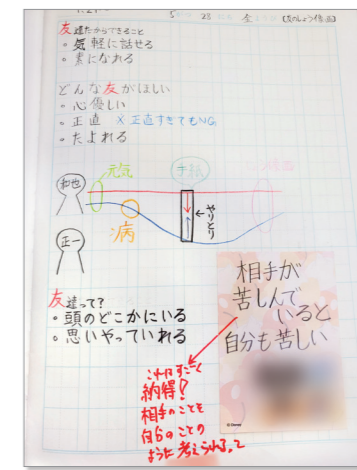 5 28 金 [友のしょう像画]
友達だからできること
・気軽に話せる
・素になれる
どんな友がほしい
・心優しい
・正直 ×正直すぎてもNG
・たよれる
元気
手紙
和也
病
やりとり
正一
友達って?
・頭のどこかにいる
・思いやっていれる
相手が
苦しんで
いると
自分も苦しい
これはすごく
納得!
相手のことを
自分のことの
ように考えられるって
© Disney